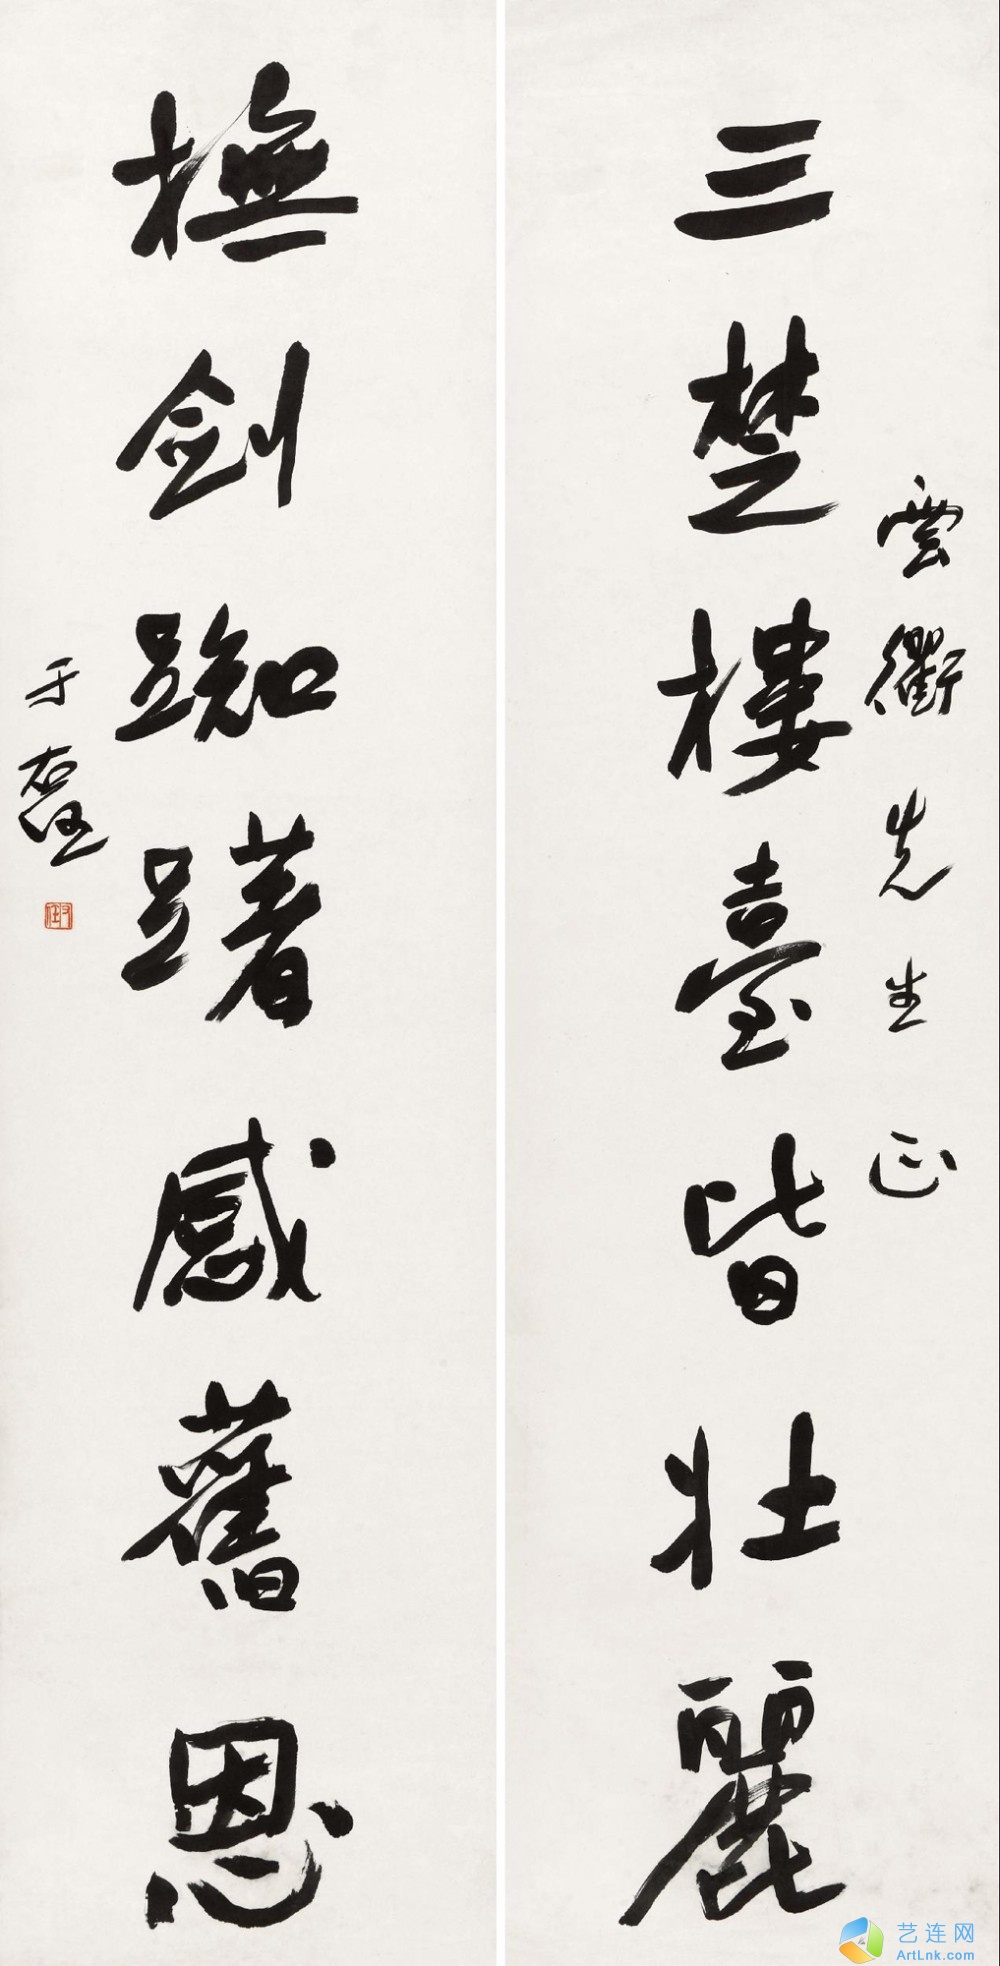 雲衢先生正
三楚樓臺皆壯麗
撫劍踟躇感舊恩
于右任
右任
艺连网
ArtLnk.com